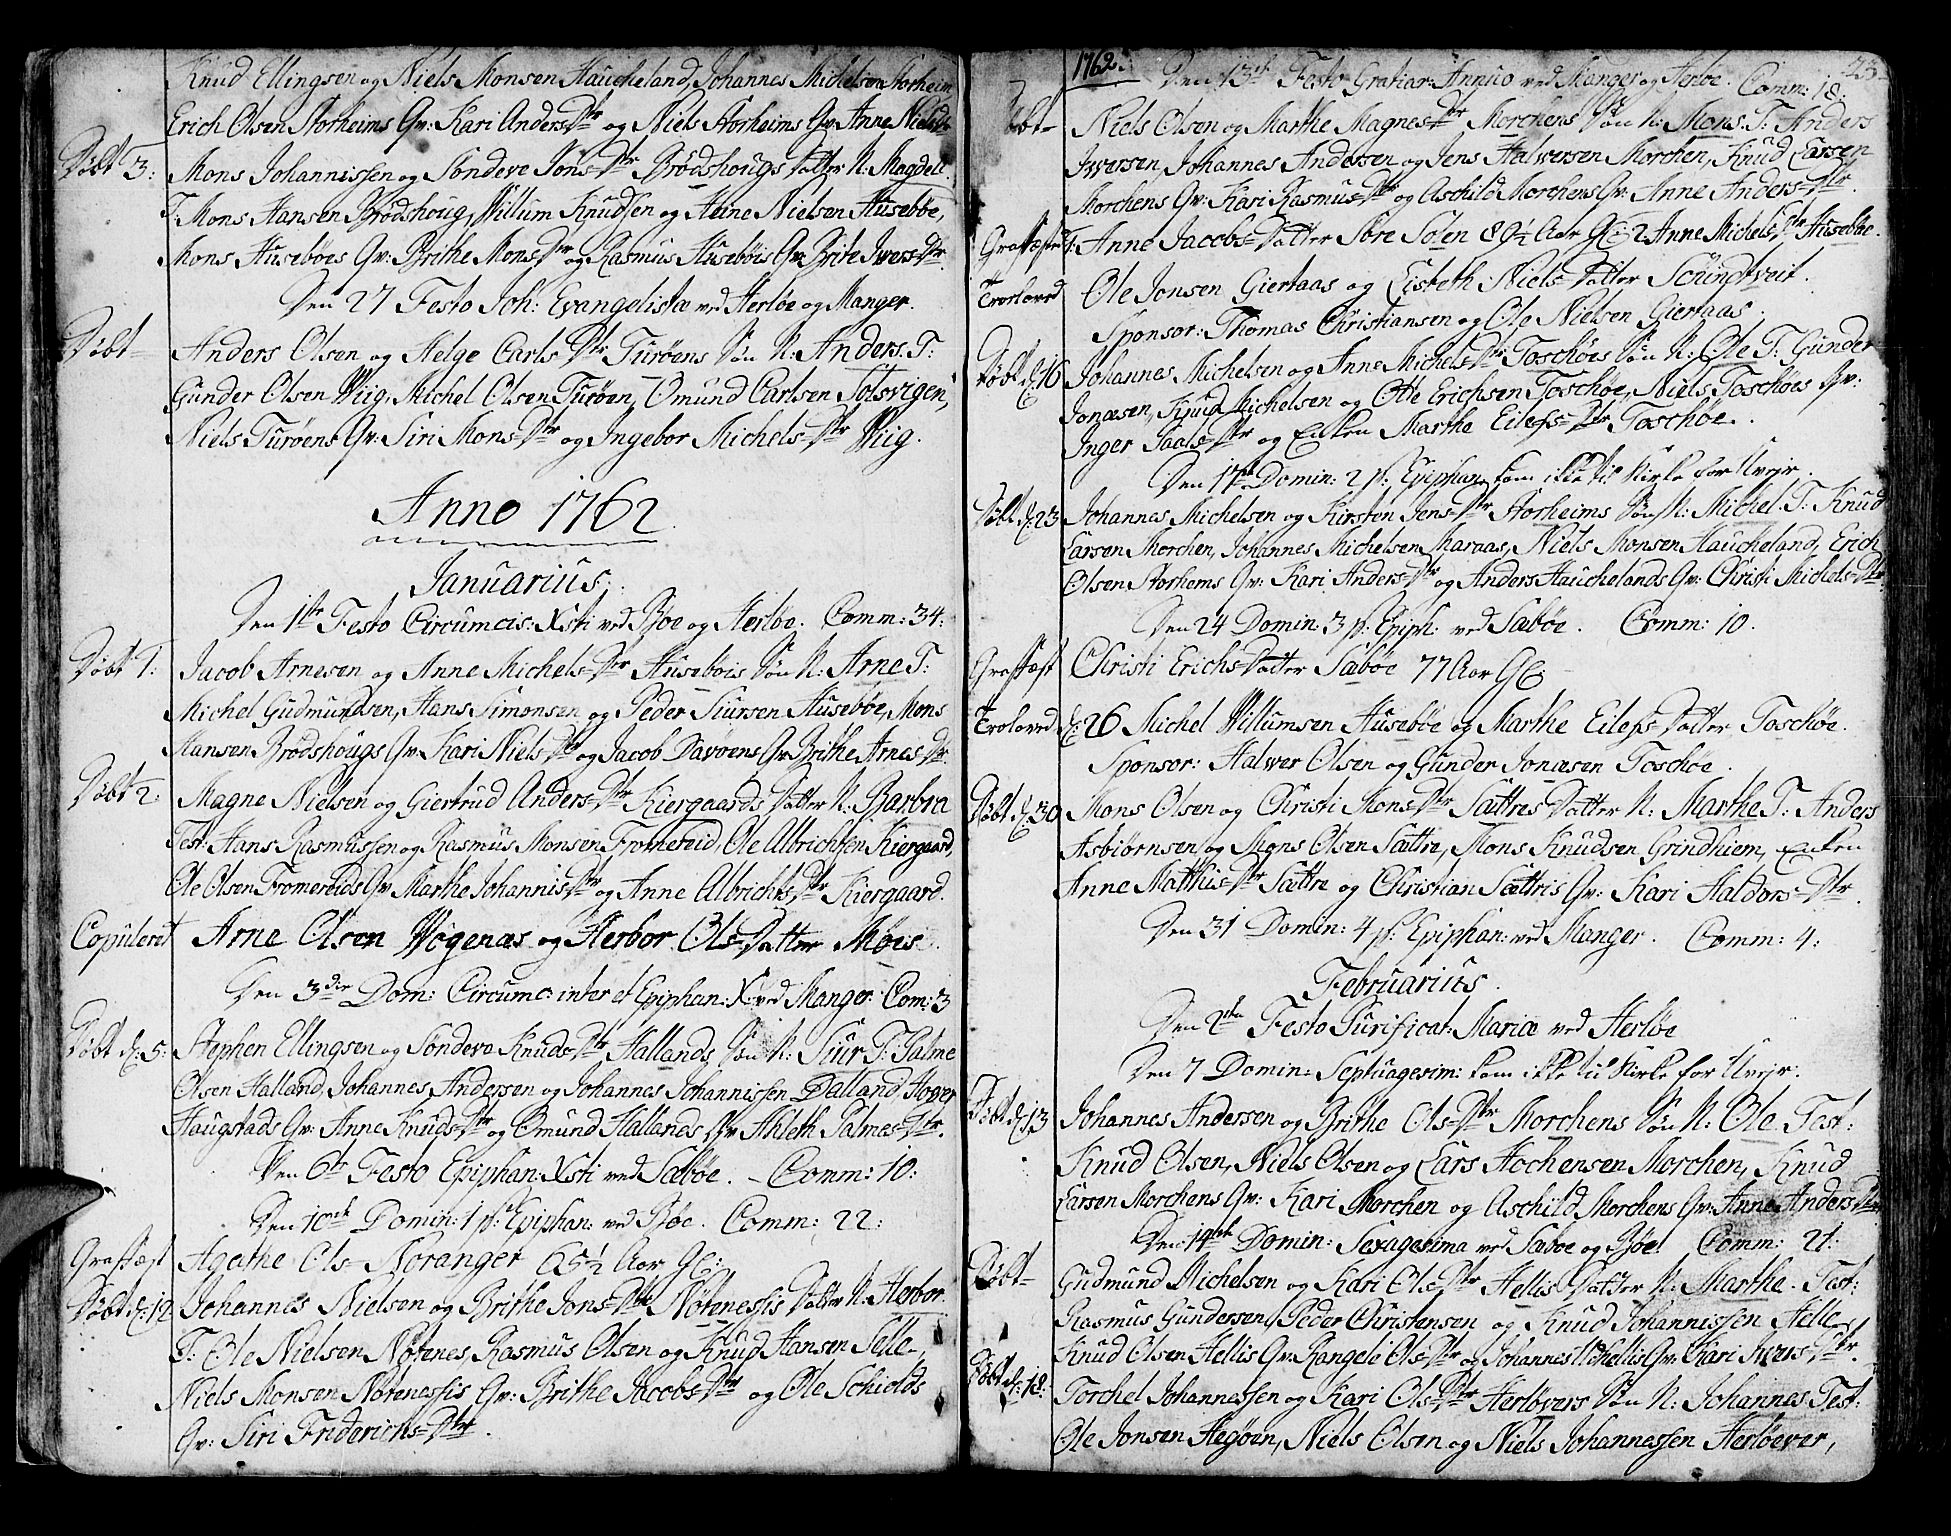 Knud Ellingsen og Niels Monsen Haucheland, Johannes Michelsen Storheim
Erich Olsen Storheims Qv: Kari Anders Dtr og Niels Storheims Qv: Anne Nielsdr
Døbt 3: Mons Johannissen og Sondeve Jons Dtr Brødshougs Datter N: Magdele.
T. Mons Hansen Brodshoug, Willum Knudsen og Heine Nielsen Husebøe,
Mons Husebøes Qv: Brithe Mons Dtr og Rasmus Husebøis Qv: Brite Ivers Dtr
Den 27 Festo Joh: Evangelistæ ved Herløe og Manger.
Døbt Anders Olsen og Helge Carls Dtr Turøens Søn N: Anders. T:
Gunder Olsen Wiig, Michel Olsen Turøen, Omund Carlsen Solsvigen,
Niels Turøens Qv: Siri Mons Dtr og Ingebor Michels Dtr Wiig.
Anno 1762.
Januarius.
Den 1te Festo Circumcis: Xsti ved Bøe og Herløe. Comm: 34:
Døbt 1: Jacob Arnesen og Anne Michels Dtr Husebøis Søn N: Arne T:
Michel Gudmundsen, Hans Simonsen og Peder Siursen Husebøe, Mons
Hansen Brødshougs Qv: Kari Niels Dtr og Jacob Davøens Qv: Brithe Arnes Dtr
Døbt 2: Magne Nielsen og Giertrud Anders Dtr Kiergaards Datter N: Barbra
Test: Hans Rasmussen og Rasmus Monsen Fromereid, Ole Albrichtsen Kiergaard,
Ole Olsen Fromereids Qv: Marthe Johannis Dtr og Anne Albrichts Dtr Kiergaard.
Copuleret Arne Olsen Wogenæs og Herbor Ols Datter Møes.
Den 3die Dom: Circumc: inter et Epiphan: X: ved Manger. Com: 3
Døbt d: 5: Stephen Ellingsen og Sondeve Knuds Dtr Hallands Søn N: Siur T: Salme
Olsen Halland, Johannes Andersen og Johannes Johannissen Dalland, Hover
Haugstads Qv: Anne Knuds Dtr og Omund Hallands Qv: Ahleth Salmes Dtr.
Den 6te Festo Epiphan: Xsti ved Sæbøe. Comm: 10:
Den 10de Domin: 1 p: Epiphan: ved Bøe. Comm: 22:
Grafæst Agathe Ols Noranger 65½ Aar Gl:
Døbt d: 12 Johannes Nielsen og Brithe Jons Dtr Nøtenessis Datter N: Herbor.
T: Ole Nielsen Nøtenes, Rasmus Olsen og Knud Hansen Selle,
Niels Monsen Nøtenessis Qv: Brithe Jacobs Dtr og Ole Schiolds
Qv: Siri Friderichs Dtr.
1762.
23.
Den 13de Festo Gratiar: Annuo ved Manger og Herløe. Comm: 18:
Døbt Niels Olsen og Marthe Magnes Dtr Morchens Søn N: Mons. T: Anders
Iversen, Johannes Andersen og Jens Halversen Morchen, Knud Larsen
Morchens Qv: Kari Rasmus Dtr og Aschild Morchens Qv: Anne Anders Dtr.
Grafæstet 1: Anne Jacobs Datter Sore Solen 89½ Aar Gl: 2 Anne Michels Dtr Husebøe.
Troloved Ole Jonsen Giertaas og Lisbeth Niels Datter Scündtveit.
Sponsor: Thomas Christiansen og Ole Nielsen Giertaas.
Døbt d: 16 Johannes Michelsen og Anne Michels Dtr Toschøes Søn N: Ole T: Gunder
Jonæsen, Knud Michelsen og Otte Erichsen Toschøe, Niels Toschøes Qv:
Inger Saals Dtr og Enken Marthe Eilefs Dtr Toschøe.
Den 17de Domin: 2 p: Epiphan: kom ikke til Kirke for Uvejr.
Døbt d: 23 Johannes Michelsen og Kirsten Jens Dtr Storheims Søn N: Michel T: Knud
Larsen Morchen, Johannes Michelsen Maraas, Niels Monsen Haucheland, Erich
Olsen Storhems Qv: Kari Anders Dtr og Anders Hauchelands Qv: Christi Michels Dtr
Den 24 Domin: 3 p: Epiph: ved Sæbøe. Comm: 10.
Grafæst Christi Erichs Datter Sæbøe 77 Aar Gl:
Troloved d: 26 Michel Willumsen Husebøe og Marthe Eilefs Datter Toschøe.
Sponsor: Halver Olsen og Gunder Jonæsen Toschøe.
Døbt d: 30 Mons Olsen og Christi Mons Dtr Sættres Datter N: Marthe T: Anders
Asbiørnsen og Mons Olsen Sættre, Mons Knudsen Grindhiem, Enken
Anne Matthis Dtr Sættre og Christian Sættris Qv: Kari Haldors Dtr.
Den 31 Domin: 4 p: Epiphan: ved Manger. Comm: 4:
Februarius.
Den 2den Festo Purificat: Mariæ ved Herløe
Den 7 Domin: Septuagesim: kom ikke til Kirke for Uvejr.
Døbt d: 13 Johannes Andersen og Brithe Ols Dtr Morchens Søn N: Ole. Test:
Knud Olsen, Niels Olsen og Lars Hochensen Morchen, Knud
Larsen Morchens Qv: Kari Morchen og Aschild Morchens Qv: Anne Anders Dtr
Den 14de Domin: Sexagesima ved Sæbøe og Bøe. Comm: 21:
Døbt Gudmund Michelsen og Kari Ols Dtr Hellis Datter N: Marthe. Test:
Rasmus Gundersen, Peder Christensen og Knud Johannissen Helle,
Knud Olsen Hellis Qv: Rangele Ols Dtr og Johannes Hellis Qv: Kari Ivers Dtr.
Døbt d: 18: Torchel Johannessen og Kari Ols Dtr Herløvers Søn N: Johannes Test:
Ole Jonsen Hegøen, Niels Olsen og Niels Johannessen Herløever,